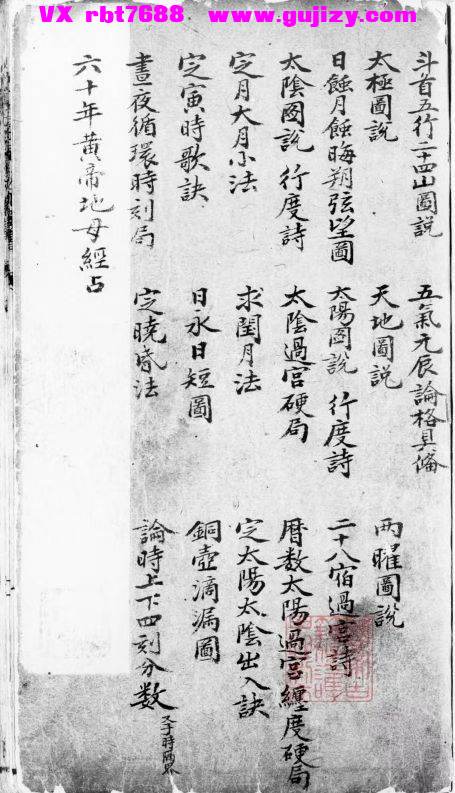 VX rbt7688    www.gujizy.com
斗首五行二十四山圖説 五氣元辰論格具俻
太極圖説 天地圖説 兩曜圖説
日蝕月蝕晦朔弦望圖 太陽圖説 行度詩 二十八宿過宫詩
太陰圖説 行度詩 太陰過宫硬局 曆数太陽過宫纏度硬局
定月大月小法 求閏月法 定太陽太陰出入訣
定寅時歌訣 日永日短圖 銅壺滴漏圖
晝夜循環時刻局 定曉昏法 論時上下四刻分数 又子時兩界
六十年黄帝地母經占